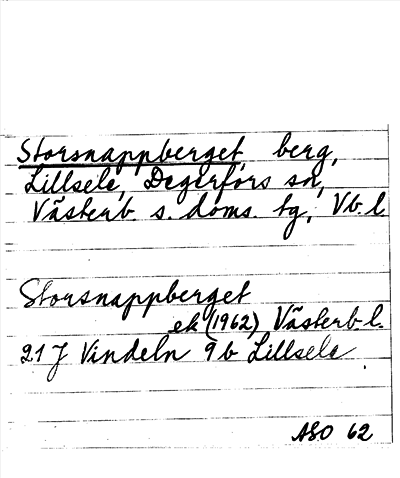 Storsnappberget, berg,
Lillsele, Degerfors sn,
Västerb. s. doms. tg, Vb. l
Storsnappberget
ek (1962) Västerb. l.
21 J Vindeln 9 b Lillsele.
ASO 62